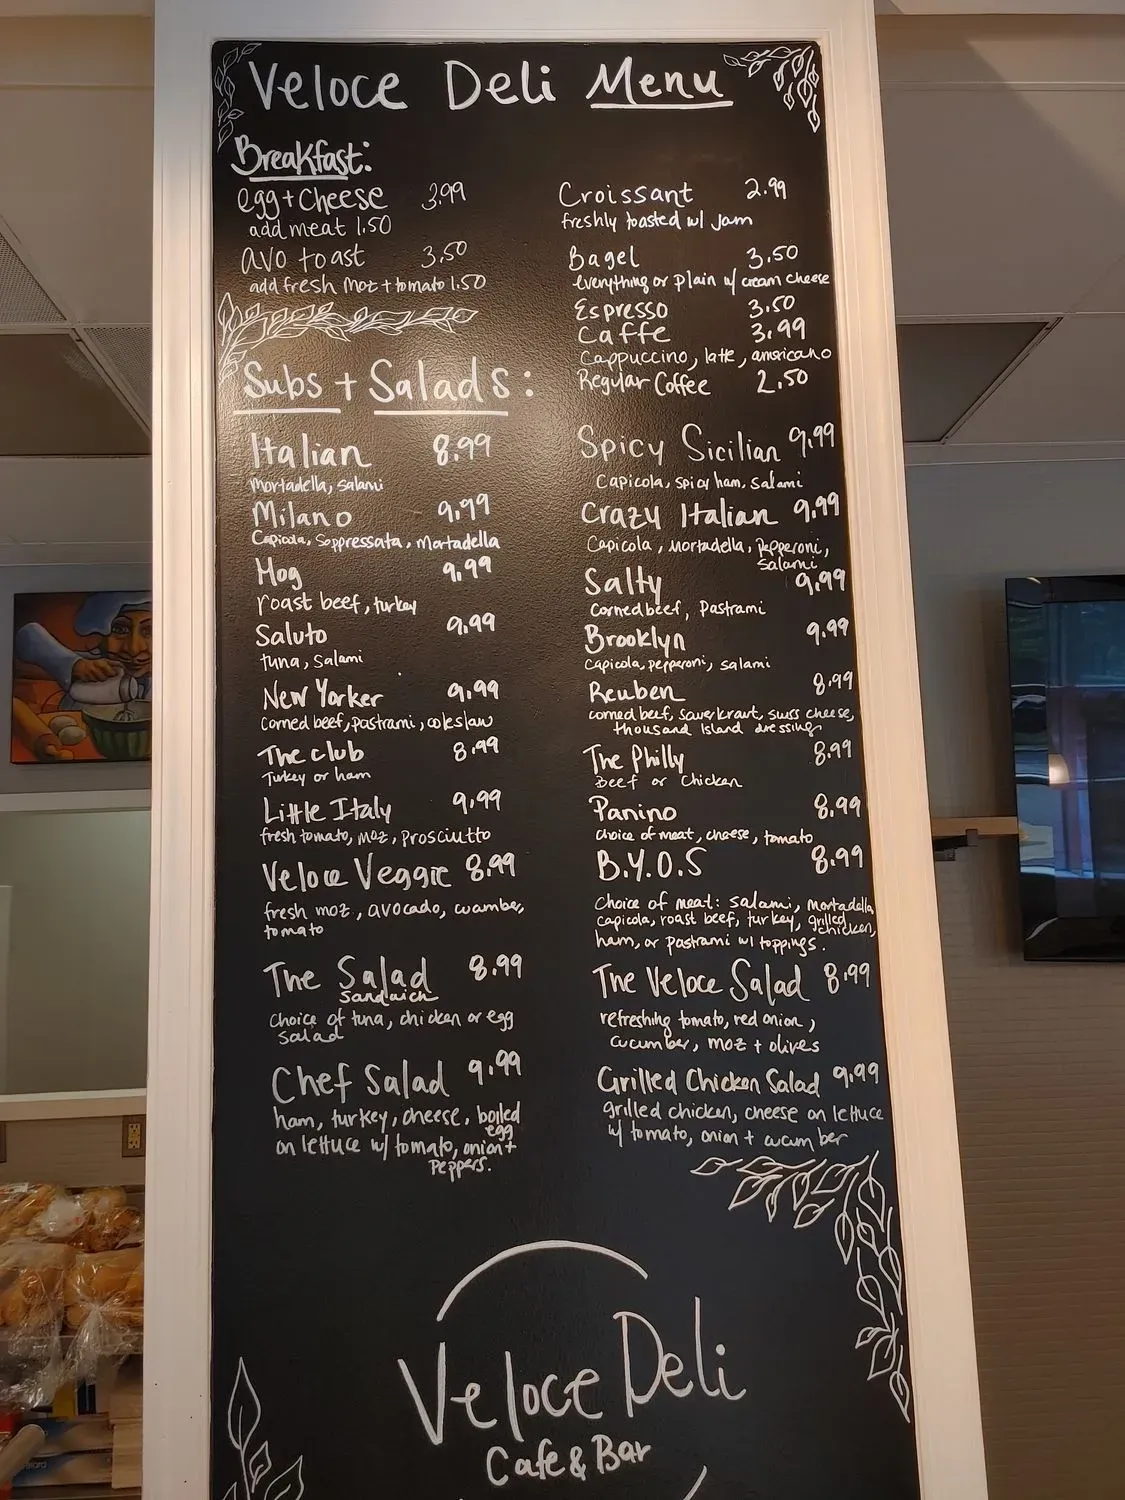 Veloce Deli Menu
Breakfast:
egg + Cheese 3.99
add meat 1.50
avo toast 3.50
add fresh moz + tomato 1.50
Croissant 2.99
freshly toasted w/ jam
Bagel 3.50
everything or plain w/ cream cheese
Espresso 3.50
Caffe 3.99
Cappuccino, latte, americano
Regular Coffee 2.50
Subs + Salads:
Italian 8.99
mortadella, salami
Milano 9.99
Capicola, Soppressata, Mortadella
Hog 9.99
roast beef, turkey
Saluto 9.99
tuna, Salami
New Yorker 9.99
Corned beef, pastrami, coleslaw
The Club 8.99
Turkey or ham
Little Italy 9.99
fresh tomato, moz, prosciutto
Veloce Veggie 8.99
fresh moz, avocado, cucumber,
tomato
The Salad 8.99
Sandwich
choice of tuna, chicken or egg
Salad
Chef Salad 9.99
ham, turkey, cheese, boiled
egg
on lettuce w/ tomato, onion +
Peppers.
Spicy Sicilian 9.99
Capicola, spicy ham, salami
Crazy Italian 9.99
Capicola, mortadella, pepperoni,
Salami
Salty 9.99
Corned beef, Pastrami
Brooklyn 9.99
Capicola, pepperoni, salami
Reuben 8.99
corned beef, sauerkraut, swiss cheese,
thousand island dressing
The Philly 8.99
Beef or Chicken
Panino 8.99
Choice of meat, cheese, tomato
B.Y.O.S 8.99
Choice of meat: salami, mortadella
capicola, roast beef, turkey, grilled
chicken,
ham, or pastrami w/ toppings.
The Veloce Salad 8.99
refreshing tomato, red onion,
cucumber, moz + olives
Grilled Chicken Salad 9.99
grilled chicken, cheese on lettuce
w/ tomato, onion + cucumber
Veloce Deli
Cafe & Bar